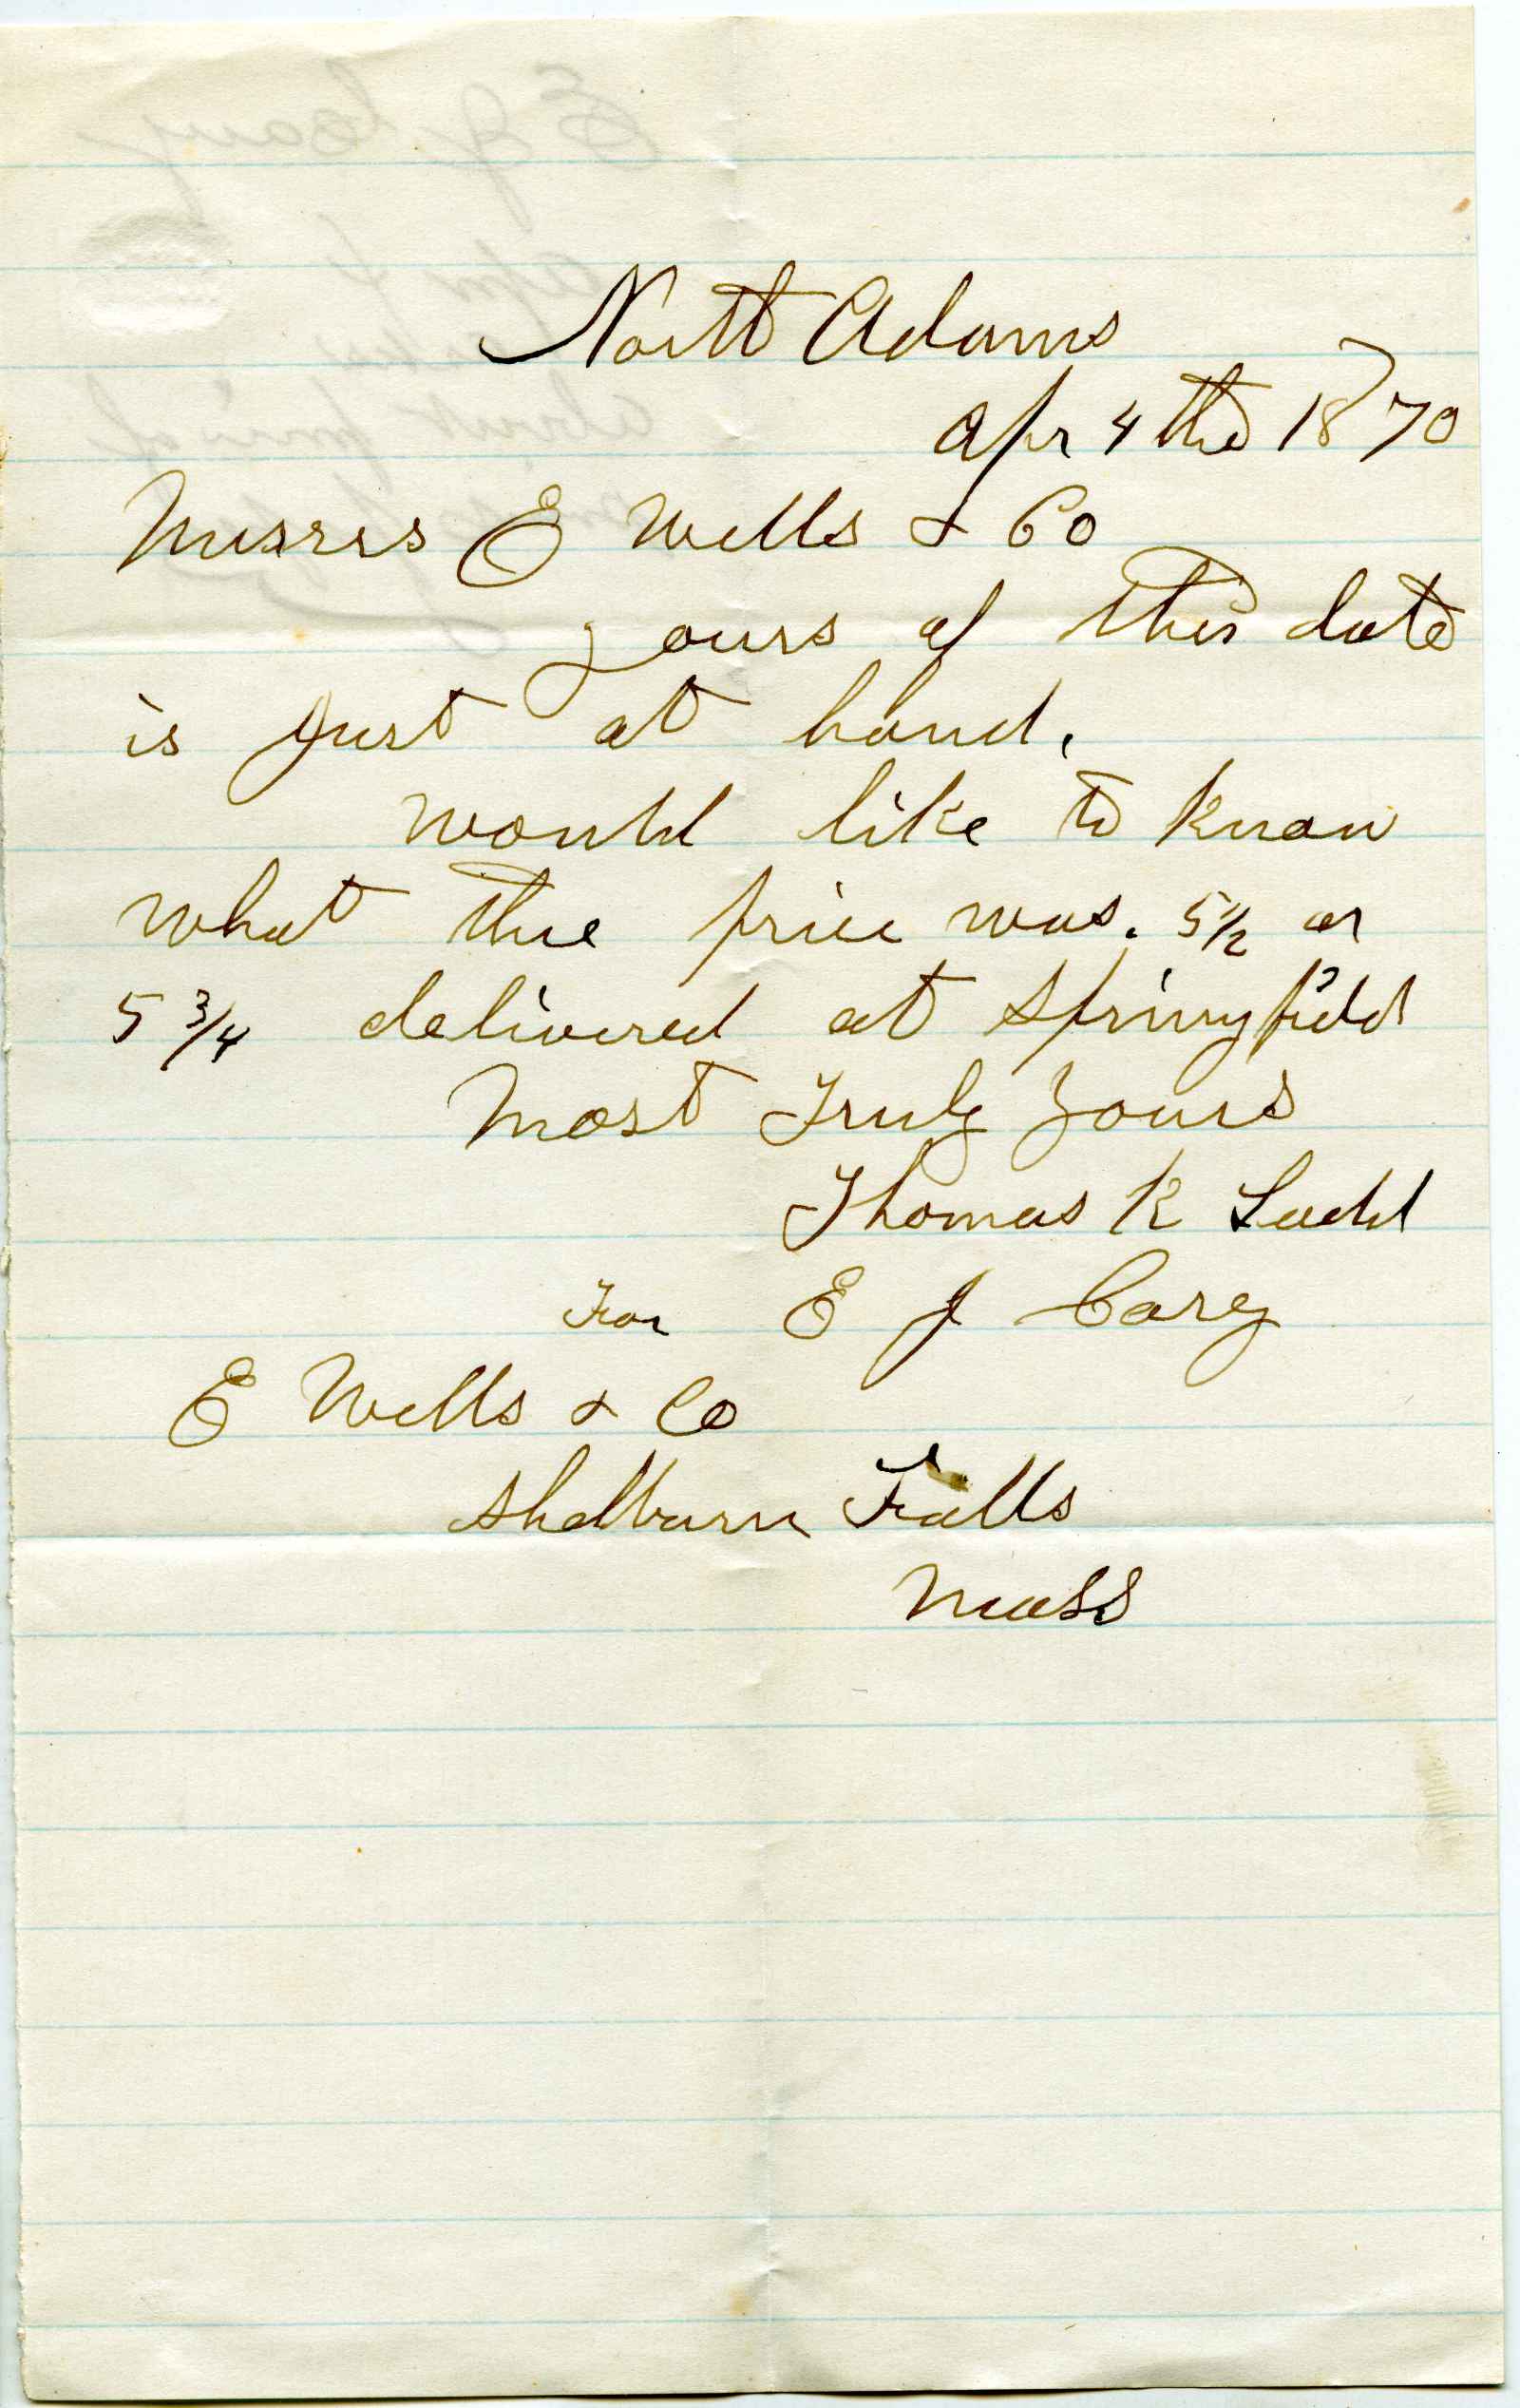 North Adams
Apr 4 the 1870
Messrs E Wells & Co
yours of this date
is Just at hand.
would like to know
what the price was. 5 1/2 or
5 3/4 delivered at Springfield
Most Truly Yours
Thomas K Ladd
For E J Cary
E Wells & Co
Shelburn Falls
Mass